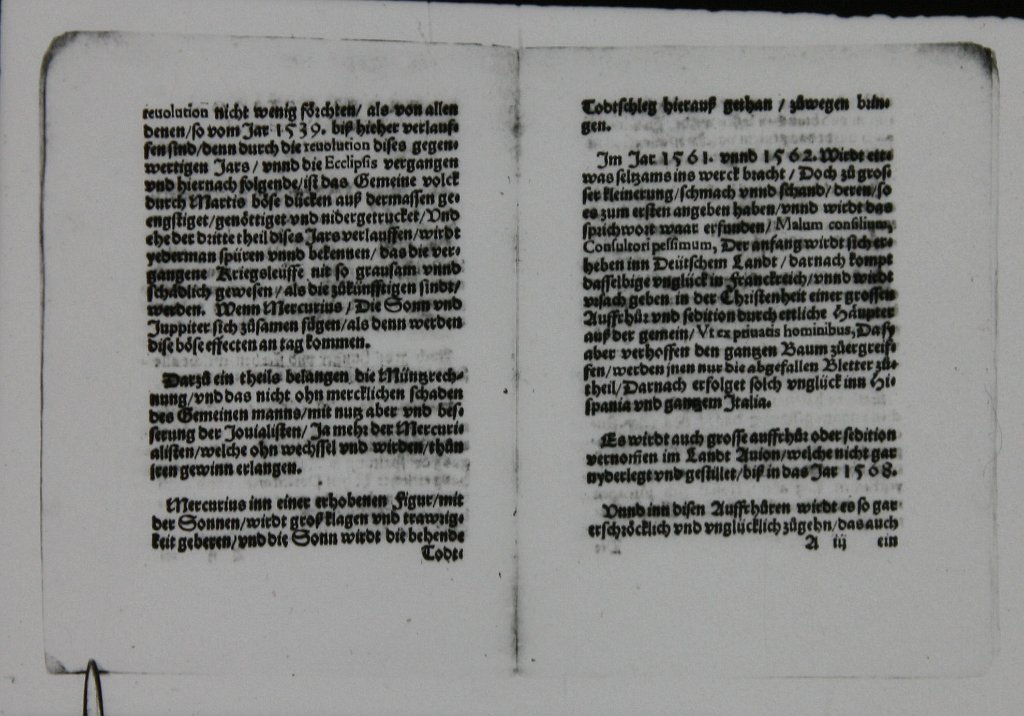 reuolution nicht wenig förchten/ als von allen
denen/so vom Jar 1539. biß hieher verlauf-
fen sind/denn durch die reuolution dises gegen-
wertigen Jars/ vnnd die Ecclipsis vergangen
vnd hiernach folgende/ist das Gemeine volck
durch Martis böse dücken auß dermassen ge-
engstiget/genöttiget vnd nidergetrucket/Vnd
ehe der dritte theil dises Jars verlauffen/wirdt
yederman spüren vnnd bekennen/das die ver-
gangene Kriegsleüffe nit so grausam vnnd
schädlich gewesen/als die zůkünfftigen sindt/
werden. Wenn Mercurius/ Die Sonn vnd
Juppiter sich zůsamen fügen/als denn werden
dise böse effecten an tag kommen.
Darzů ein theils belangen die Müntzrech-
nung/vnd das nicht ohn mercklichen schaden
des Gemeinen manns/mit nutz aber vnd bes-
serung der Jouialisten/ Ja mehr der Mercuri-
alisten/welche ohn wechssel vnd wirden/thůn
jren gewinn erlangen.
Mercurius inn einer erhobenen Figur/mit
der Sonnen/wirdt groß klagen vnd trawrig-
keit geberen/vnd die Sonn wirdt die behende
Todt-
Todtschleg hierauß gethan / zůwegen brin-
gen.
Im Jar 1561. vnnd 1562. Wirdt ett-
was seltzams ins werck bracht/ Doch zů gros-
ser kleinerung/schmach vnnd schand/ deren/so
es zum ersten angeben haben/vnnd wirdt das
sprichwort waar erfunden/ Malum consilium,
Consultori pessimum, Der anfang wirdt sich er-
heben inn Deütschem Landt/darnach kompt
dasselbige vnglück in Franckreich/vnnd wirdt
vrsach geben in der Christenheit einer grossen
Auffrhůr vnd sedition durch entliche Häupter
auß der gemein/ Vt ex priuatis hominibus, Dasy
aber verhoffen den gantzen Baum zůergreif-
fen/werden jnen nur die abgefallen Bletter zů-
theil/Darnach erfolget solch vnglück inn Hi-
spania vnd gantzem Italia.
Es wirdt auch grosse auffrhůr oder sedition
vernommen im Landt Auion/welche nicht gar
nyderlegt vnd gestillet/biß in das Jar 1568.
Vnnd inn disen Auffrhůren wirdt es so gar
erschröcklich vnd vnglücklich zůgehn/das auch
A iij ein